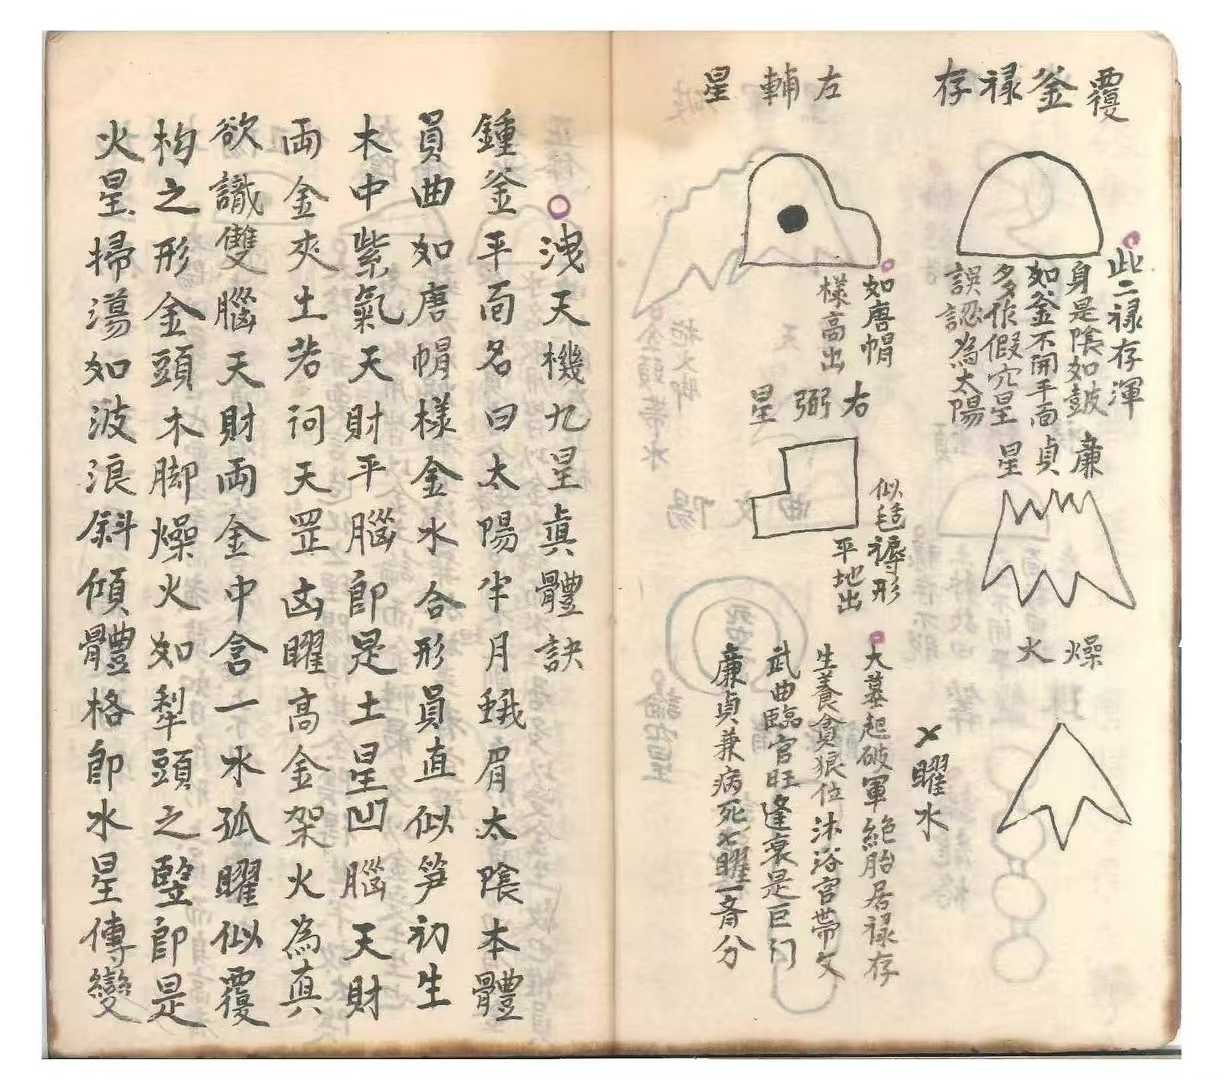 覆釜祿存
此二祿存渾
身是陰如鼓
如釜不開平面
多作假穴星
誤認為太陽
廉
貞
星
燥火
曜水
左輔星
如唐帽
樣高出
右弼星
似毡褥形
平地出
大墓起破軍絕胎居祿存
生養貪狼位沐浴官帶文
武曲臨官旺逢衰是巨門
廉貞兼病死七曜一齊分
洩天機九星真體訣
鍾釜平面名曰太陽半月蛾眉太陰本體
員曲如唐帽樣金水合形員直似笋初生
木中紫氣天財平腦即是土星凹腦天財
両金夾土若祠天罡凶曜高金架火為真
欲識雙腦天財両金中含一水孤曜似覆
杓之形金頭木脚燥火如犁頭之竪即是
火星掃蕩如波浪斜傾體格即水星傳變